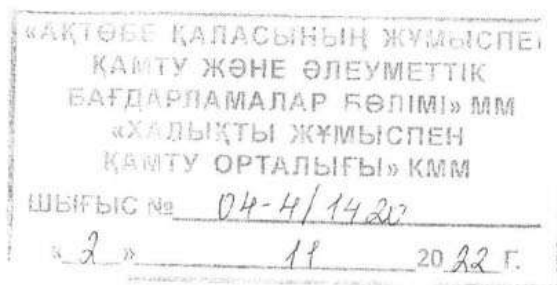 «АҚТӨБЕ ҚАЛАСЫНЫҢ ЖҰМЫСПЕН
ҚАМТУ ЖӘНЕ ӘЛЕУМЕТТІК
БАҒДАРЛАМАЛАР БӨЛІМІ» ММ
«ХАЛЫҚТЫ ЖҰМЫСПЕН
ҚАМТУ ОРТАЛЫҒЫ» КММ
ШЫҒЫС № 04-4/1420
« 2 » 11 20 22 Г.